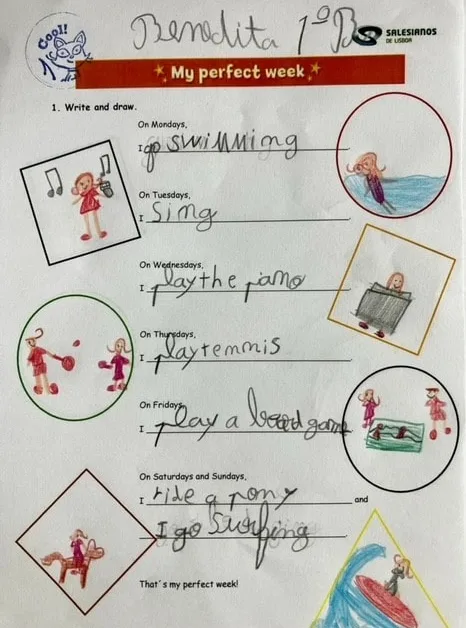 Cool!
Benedita 1ºB
SALESIANOS
DE LISBOA
My perfect week
1. Write and draw.
On Mondays,
I go swimming
On Tuesdays,
I sing
On Wednesdays,
I play the piano
On Thursdays,
I play tennis
On Fridays,
I play a board game
On Saturdays and Sundays,
I ride a pony and
I go surfing
That´s my perfect week!